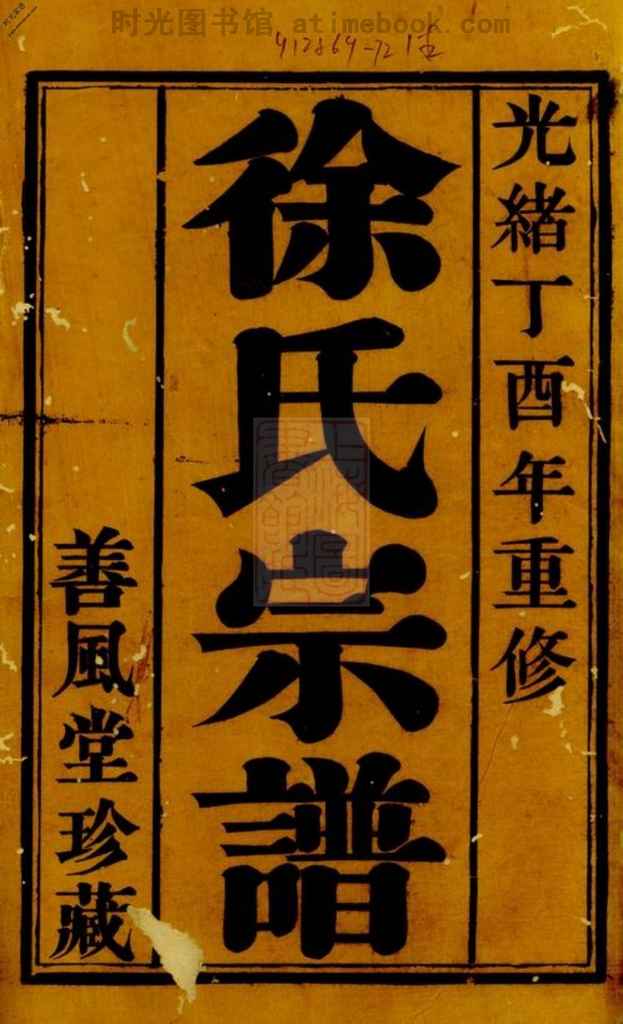 时光图书馆 atimebook.com
光緒丁酉年重修
徐氏宗譜
善風堂珍藏